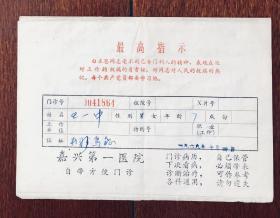 最高指示
白求恩同志毫不利己专门利人的精神，表现在他
对工作的极端的负责任，对同志对人民的极端的热
忱。每个共产党员都要学习他。
门诊号 J041864 住院号 X片号
姓名 性别 男女 年龄 7 成婚
工作单位 特约号 职业(工种)
住址
嘉兴第一医院
自带方便门诊
门诊病历，自己保管
下次看病，必须带来
诊断治疗，可作参考
各科通用，请勿遗失